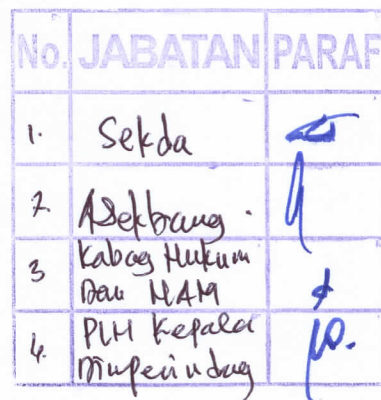 No. JABATAN PARAF
1. Sekda
2. Asekbang.
3 Kabag Hukum
Dan HAM
4. PLH Kepala
Dinperindag